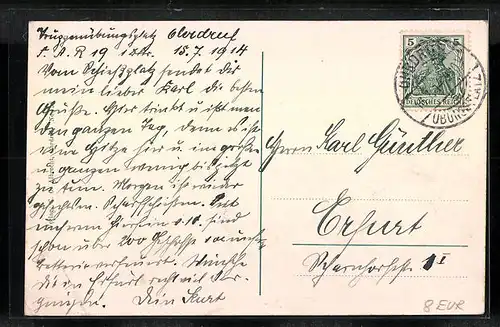 Truppenübungsplatz Ohrdruf
F. A. R 19 15.7.1914
Vom Schießplatz sendet dir
mein lieber Karl die besten
Grüße. Hier trinkt u ißt man
den ganzen Tag, denn es ist
eine Hitze hier u. im großen
u ganzen wenig
zu tun. Morgen ist wieder
Scharfschießen. Seit
Hiersein v. 10. sind
schon über 200
Wünsche
dir in Erfurt recht viel Ver-
gnügen. Dein Kurt
5 5
DEUTSCHES REICH
OHRDRUF
Herrn Karl Günther
Erfurt
Scharnhorststr. 1 I
8 EUR